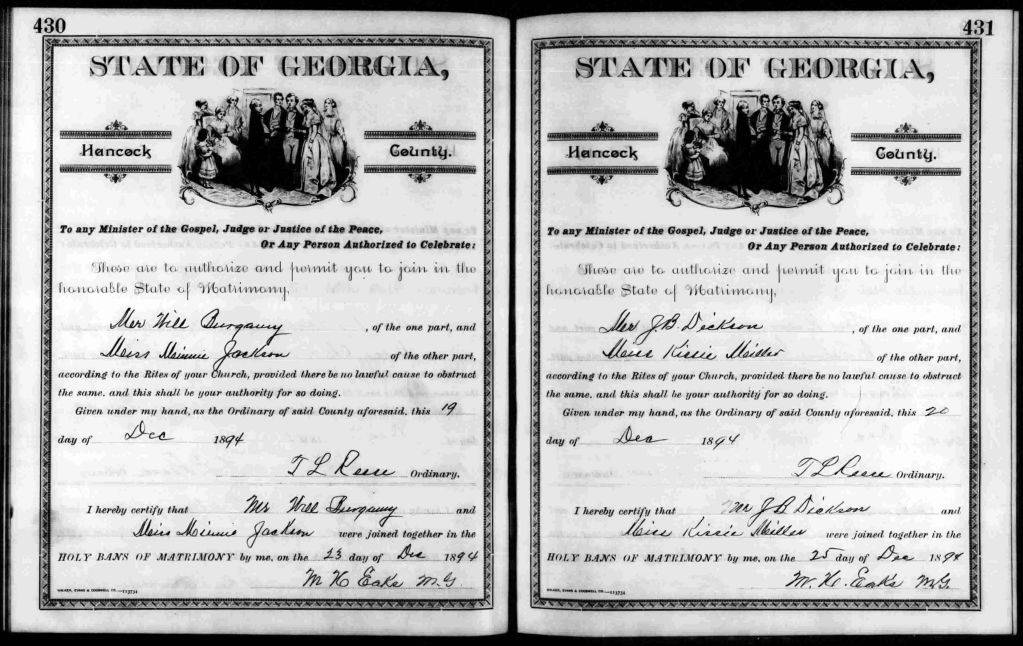 430
STATE OF GEORGIA,
Hancock County.
To any Minister of the Gospel, Judge or Justice of the Peace,
Or Any Person Authorized to Celebrate:
These are to authorize and permit you to join in the
honorable State of Matrimony,
Mr Will Burgamy, of the one part, and
Miss Minnie Jackson of the other part,
according to the Rites of your Church, provided there be no lawful cause to obstruct
the same, and this shall be your authority for so doing.
Given under my hand, as the Ordinary of said County aforesaid, this 19
day of Dec 1894
T L Reese Ordinary.
I hereby certify that Mr Will Burgamy and
Miss Minnie Jackson were joined together in the
HOLY BANS OF MATRIMONY by me, on the 23 day of Dec 1894
M. G.
WALKER, EVANS & COGSWELL CO.—113734
431
STATE OF GEORGIA,
Hancock County.
To any Minister of the Gospel, Judge or Justice of the Peace,
Or Any Person Authorized to Celebrate:
These are to authorize and permit you to join in the
honorable State of Matrimony,
Mr J. B. Dickson, of the one part, and
Miss Kissie Miller of the other part,
according to the Rites of your Church, provided there be no lawful cause to obstruct
the same, and this shall be your authority for so doing.
Given under my hand, as the Ordinary of said County aforesaid, this 20
day of Dec 1894
T L Reese Ordinary.
I hereby certify that Mr J B Dickson and
Miss Kissie Miller were joined together in the
HOLY BANS OF MATRIMONY by me, on the 25 day of Dec 1894
M. G.
WALKER, EVANS & COGSWELL CO.—113734